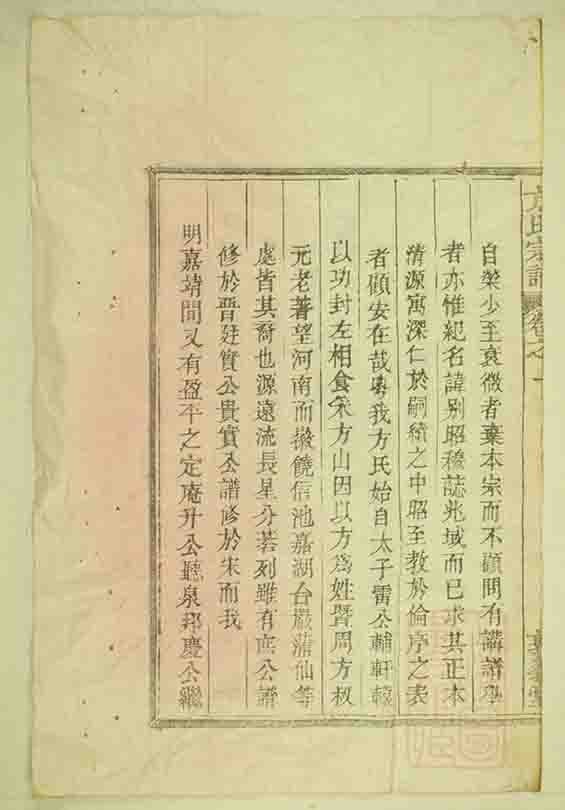 方氏宗譜 卷之一
自榮少至衰微者棄本宗而不顧間有講譜學
者亦惟紀名諱别昭穆誌兆域而已求其正本
清源寓深仁於嗣續之中昭至教於倫序之表
者顧安在哉粤我方氏始自太子雷公輔軒轅
以功封左相食采方山因以方爲姓暨周方叔
元老著望河南而徽饒信池嘉湖台嚴蒲仙等
處皆其裔也源遠流長星分若列雖有玄公譜
修於晋廷實公貴實公譜修於宋而我
明嘉靖間又有盈平之定庵升公聽泉邦慶公繼